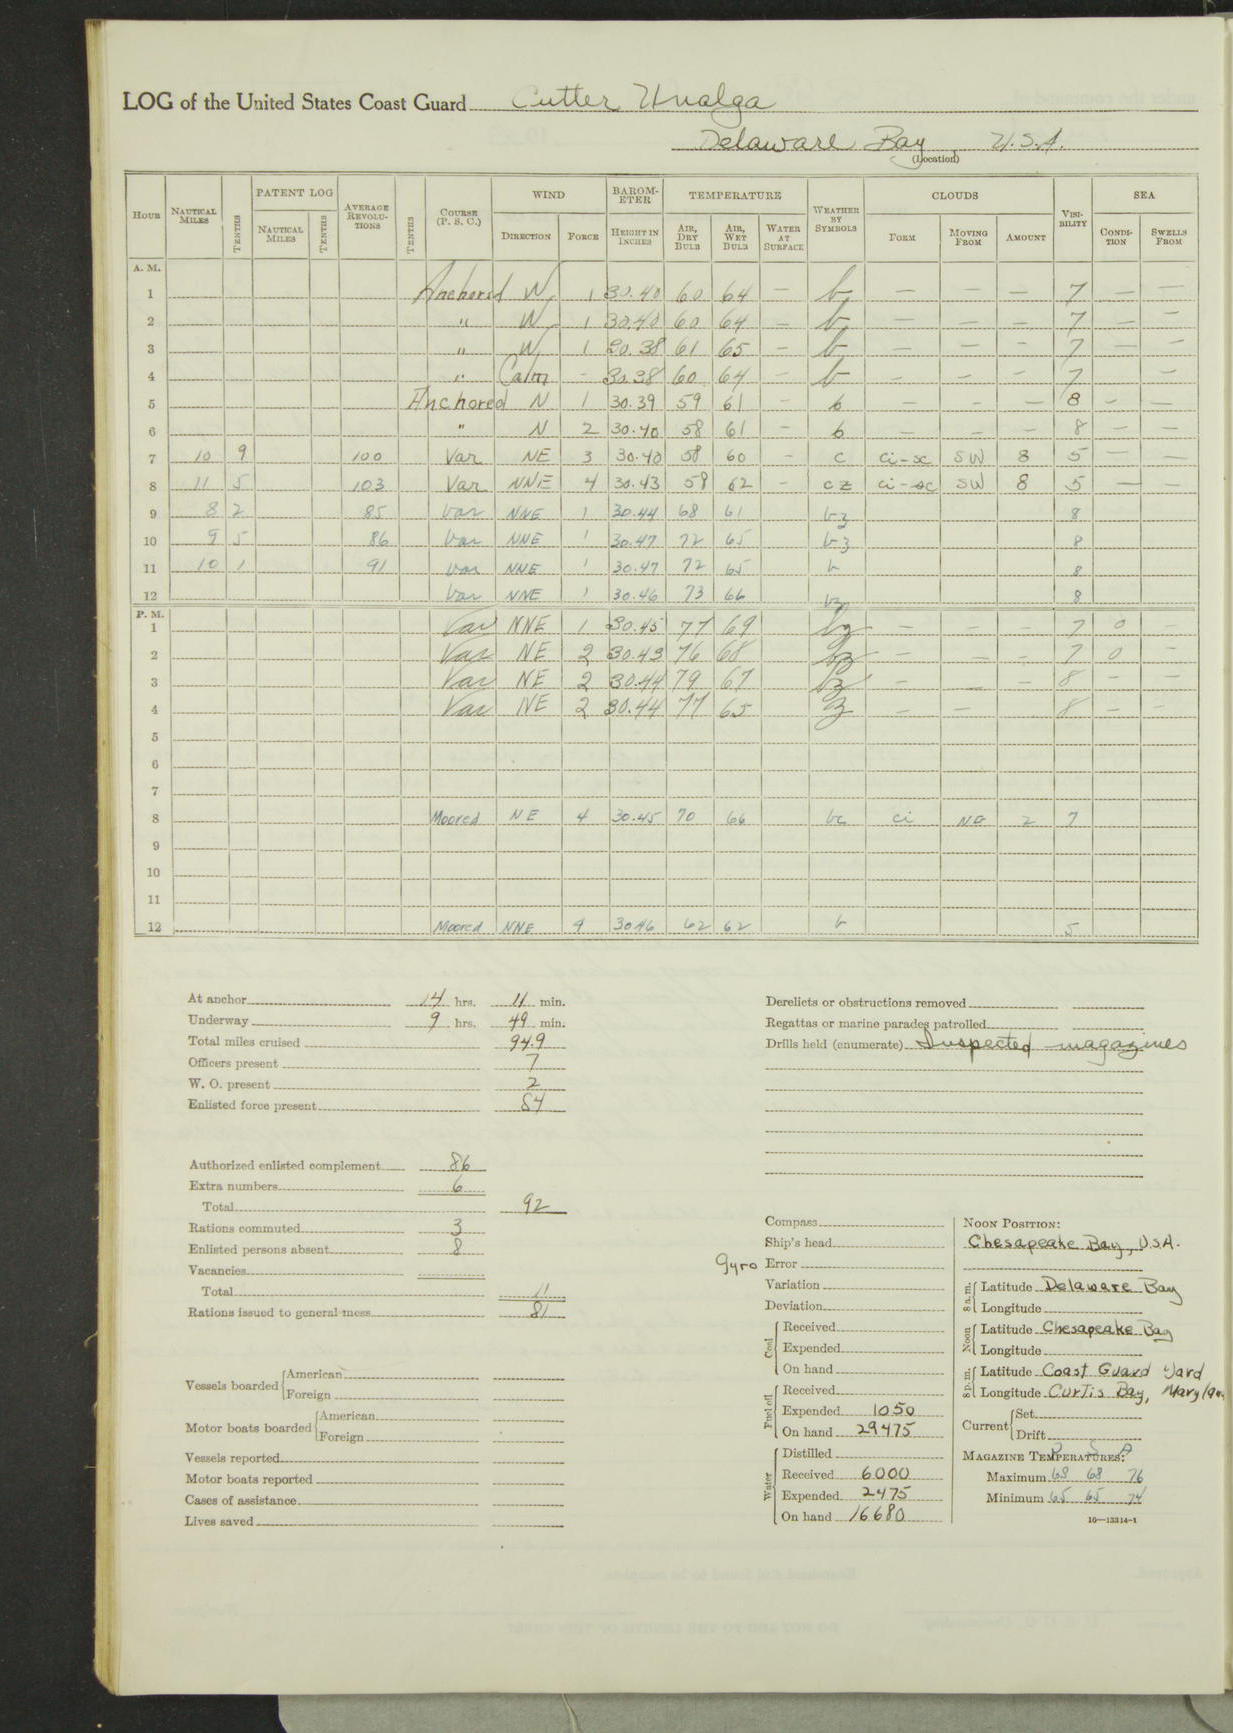 LOG of the United States Coast Guard Cutter Unalga
Delaware Bay, U.S.A.
(Location)
HOUR NAUTICAL MILES TENTHS PATENT LOG NAUTICAL MILES TENTHS AVERAGE REVOLUTIONS TENTHS COURSE (P. S. C.) WIND DIRECTION FORCE BAROMETER HEIGHT IN INCHES TEMPERATURE AIR, DRY BULB AIR, WET BULB WATER AT SURFACE WEATHER BY SYMBOLS CLOUDS FORM MOVING FROM AMOUNT VISIBILITY SEA CONDITION SWELLS FROM
A. M.
1 Anchored W 1 30.40 60 64 — b — — — 7 — —
2 " W 1 30.40 60 64 — b — — — 7 — —
3 " W 1 30.38 61 65 — b — — — 7 — —
4 " Calm - 30.38 60 64 — b — — — 7 —
5 Anchored N 1 30.39 59 61 — b — — — 8 — —
6 " N 2 30.40 58 61 — b — — — 8 — —
7 10 9 100 Var NE 3 30.40 58 60 - c ci-sc SW 8 5 — —
8 11 5 103 Var NNE 4 30.43 58 62 - cz ci-sc SW 8 5 — —
9 8 2 85 Var NNE 1 30.44 68 61 bz 8
10 9 5 86 Var NNE 1 30.47 72 65 bz 8
11 10 1 91 Var NNE 1 30.47 72 65 b 8
12 Var NNE 1 30.46 73 66 bz 8
P. M.
1 Var NNE 1 30.45 77 69 bz — — — 7 0 —
2 Var NE 2 30.43 76 68 bz — — — 7 0 —
3 Var NE 2 30.44 79 67 bz — — — 8 — —
4 Var NE 2 30.44 77 65 z — — — 8 — —
5
6
7
8 Moored NE 4 30.45 70 66 bc ci NE 2 7
9
10
11
12 Moored NNE 4 30.46 62 62 b 5
At anchor 14 hrs. 11 min.
Underway 9 hrs. 49 min.
Total miles cruised 94.9
Officers present 7
W. O. present 2
Enlisted force present 84
Authorized enlisted complement 86
Extra numbers 6
Total 92
Rations commuted 3
Enlisted persons absent 8
Vacancies
Total 11
Rations issued to general mess 81
Vessels boarded American
Foreign
Motor boats boarded American
Foreign
Vessels reported
Motor boats reported
Cases of assistance
Lives saved
Derelicts or obstructions removed
Regattas or marine parades patrolled
Drills held (enumerate) Inspected magazines
Compass
Ship's head
Gyro Error
Variation
Deviation
Coal Received
Expended
On hand
Fuel oil Received
Expended 1050
On hand 29475
Water Distilled
Received 6000
Expended 2475
On hand 16680
NOON POSITION:
Chesapeake Bay, U.S.A.
8 a. m. Latitude Delaware Bay
Longitude
Noon Latitude Chesapeake Bay
Longitude
8 p. m. Latitude Coast Guard Yard
Longitude Curtis Bay,
Current Set
Drift
MAGAZINE TEMPERATURES:
Maximum 68 68 76
Minimum 65 65 74
16—13314-1